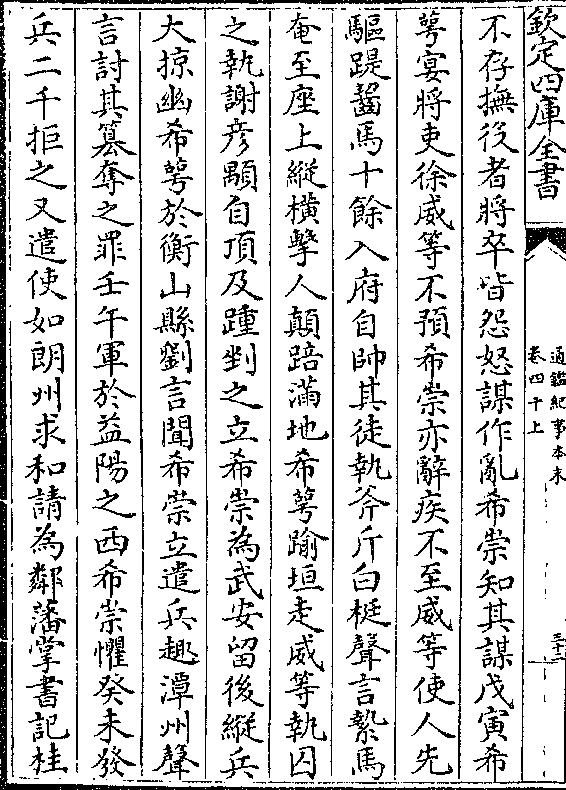 欽定四庫全書
通鑑紀事本末
卷四十上
三十二
不存撫役者將卒皆怨怒謀作亂希崇知其謀戊寅希
萼宴將吏徐威等不預希崇亦辭疾不至威等使人先
驅踶齧馬十餘入府自帥其徒執斧斤白梃聲言縶馬
奄至座上縱橫擊人顛踣滿地希萼踰垣走威等執囚
之執謝彦顒自頂及踵剉之立希崇為武安留後縱兵
大掠幽希萼於衡山縣劉言聞希崇立遣兵趣潭州聲
言討其簒奪之罪壬午軍於益陽之西希崇懼癸未發
兵二千拒之又遣使如朗州求和請為鄰藩掌書記桂